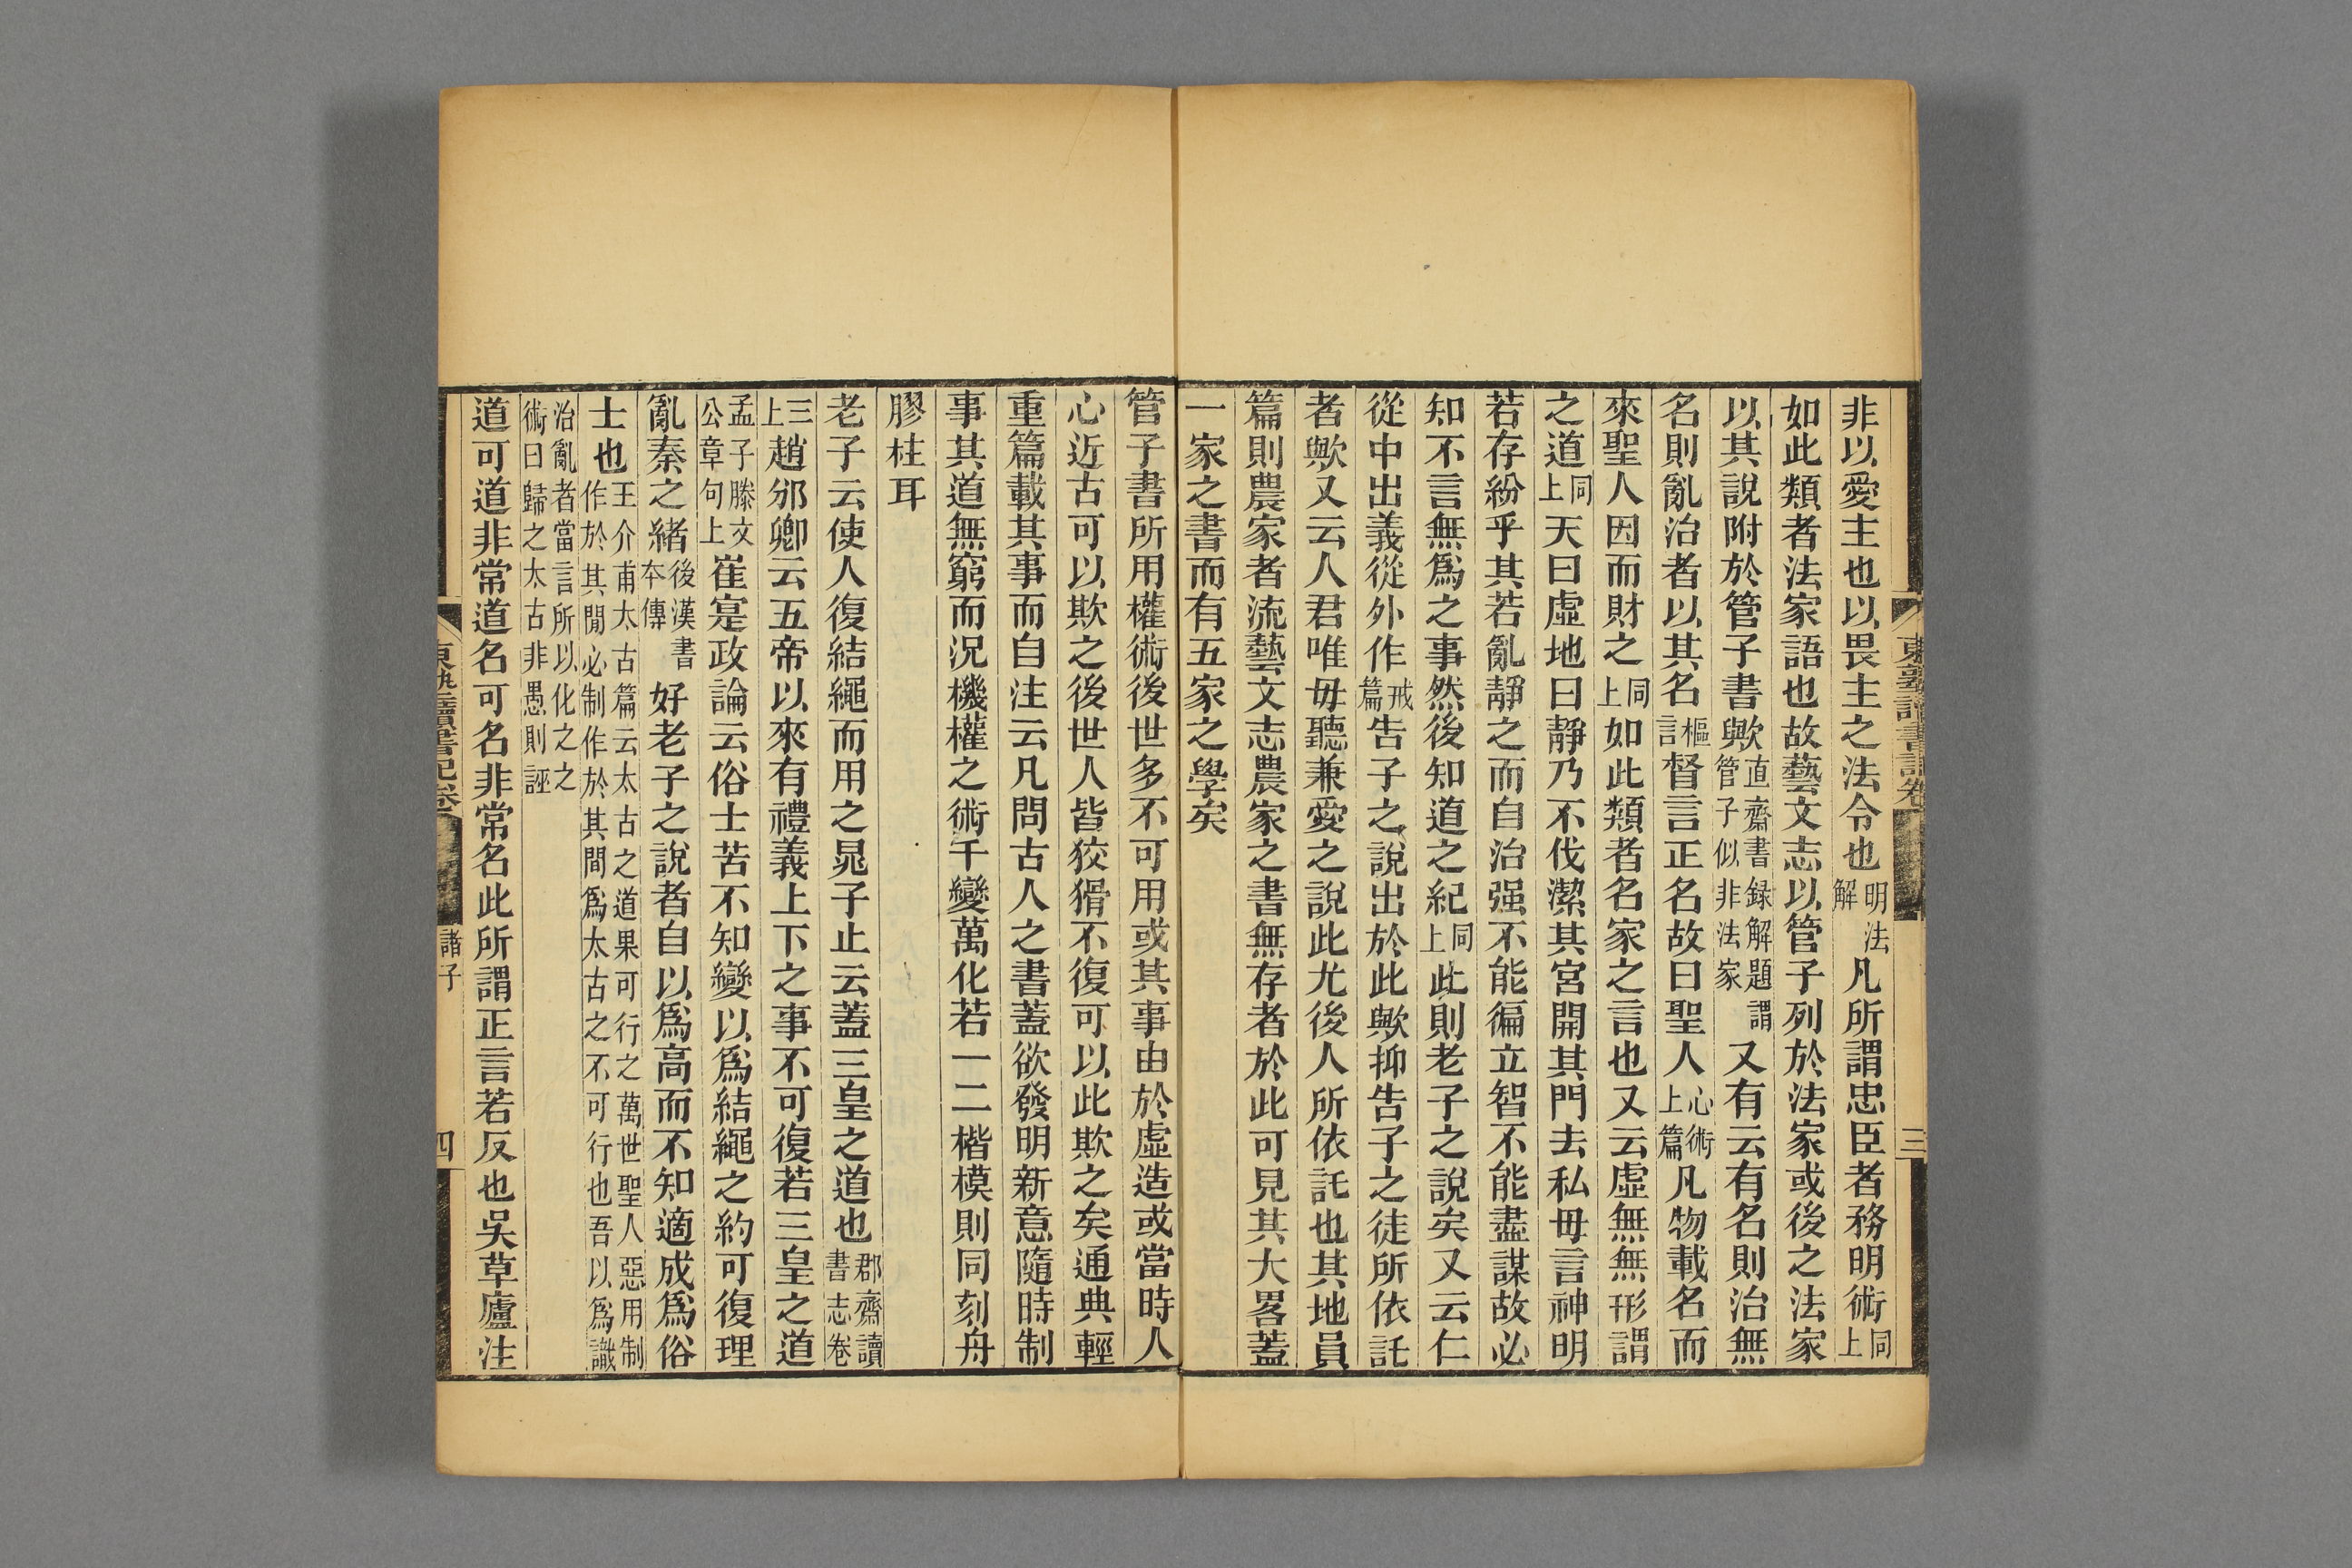 東塾讀書記卷
三
非以愛主也以畏主之法令也明法解凡所謂忠臣者務明術同上
如此類者法家語也故藝文志以管子列於法家或後之法家
以其說附於管子書歟直齋書録解題謂管子似非法家又有云有名則治無
名則亂治者以其名樞言督言正名故曰聖人心術上篇凡物載名而
來聖人因而財之同上如此類者名家之言也又云虛無無形謂
之道同上天曰虛地曰靜乃不伐潔其宮開其門去私毋言神明
若存紛乎其若亂靜之而自治强不能徧立智不能盡謀故必
知不言無爲之事然後知道之紀同上此則老子之說矣又云仁
從中出義從外作戒篇告子之說出於此歟抑告子之徒所依託
者歟又云人君唯毋聽兼愛之說此尤後人所依託也其地員
篇則農家者流藝文志農家之書無存者於此可見其大畧蓋
一家之書而有五家之學矣
管子書所用權術後世多不可用或其事由於虛造或當時人
心近古可以欺之後世人皆狡猾不復可以此欺之矣通典輕
重篇載其事而自注云凡問古人之書蓋欲發明新意隨時制
事其道無窮而況機權之術千變萬化若一二楷模則同刻舟
膠柱耳
老子云使人復結繩而用之晁子止云蓋三皇之道也郡齋讀書志卷
三上趙邠卿云五帝以來有禮義上下之事不可復若三皇之道
孟子滕文公章句上崔寔政論云俗士苦不知變以爲結繩之約可復理
亂秦之緒後漢書本傳好老子之說者自以爲高而不知適成爲俗
士也王介甫太古篇云太古之道果可行之萬世聖人惡用制作於其閒必制作於其間爲太古之不可行也吾以爲識
治亂者當言所以化之之術曰歸之太古非愚則誣
道可道非常道名可名非常名此所謂正言若反也吳草廬注
東塾讀書記卷
諸子
四